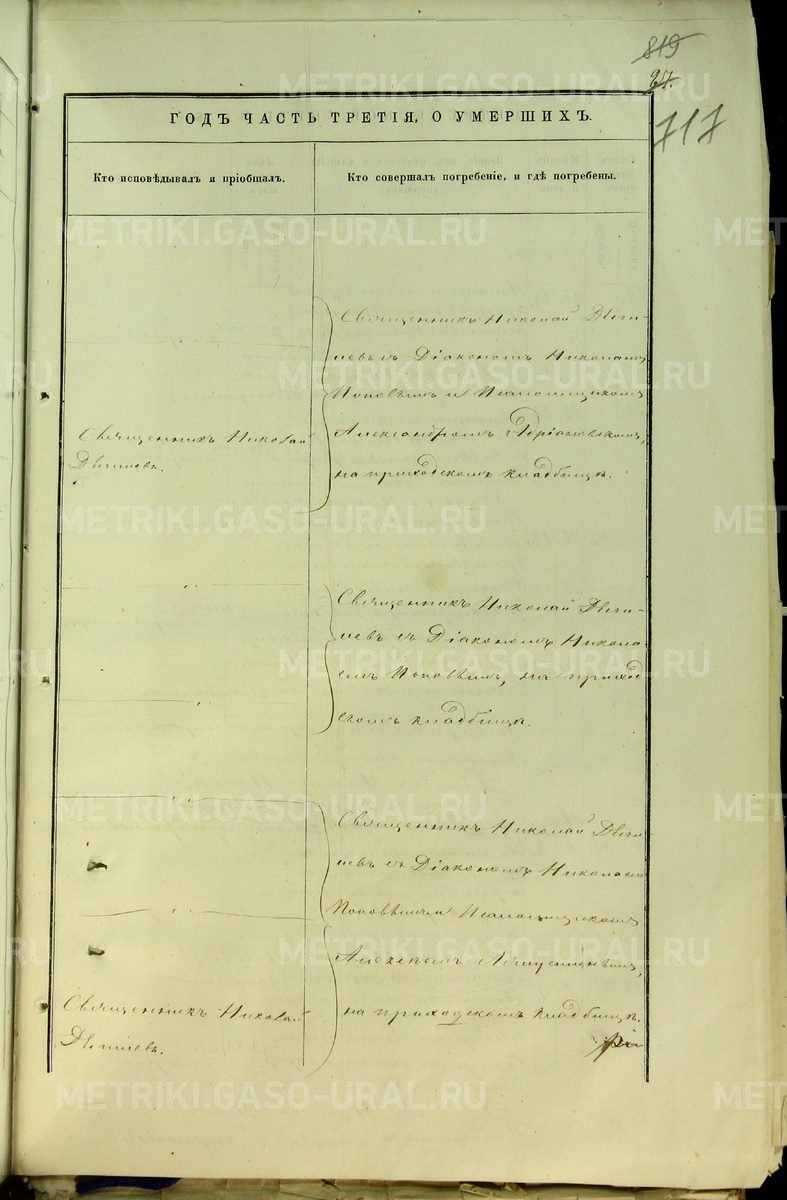 819
27.
717
ГОДЪ ЧАСТЬ ТРЕТІЯ, О УМЕРШИХЪ.
Кто исповѣдывалъ и пріобщалъ.
Кто совершалъ погребеніе, и гдѣ погребены.
Священникъ Николай
Священникъ Николай
съ Діакономъ Николаемъ
Поповымъ и Псаломщикомъ
Александромъ Адріановскимъ,
на приходскомъ кладбищѣ.
Священникъ Николай
съ Діакономъ Никола-
емъ Поповымъ, на приход
скомъ кладбищѣ.
Священникъ Николай
съ Діакономъ Николаемъ
Поповымъ и Псаломщикомъ
Алексѣемъ
на приходскомъ кладбищѣ.
Священникъ Николай
METRIKI.GASO-URAL.RU